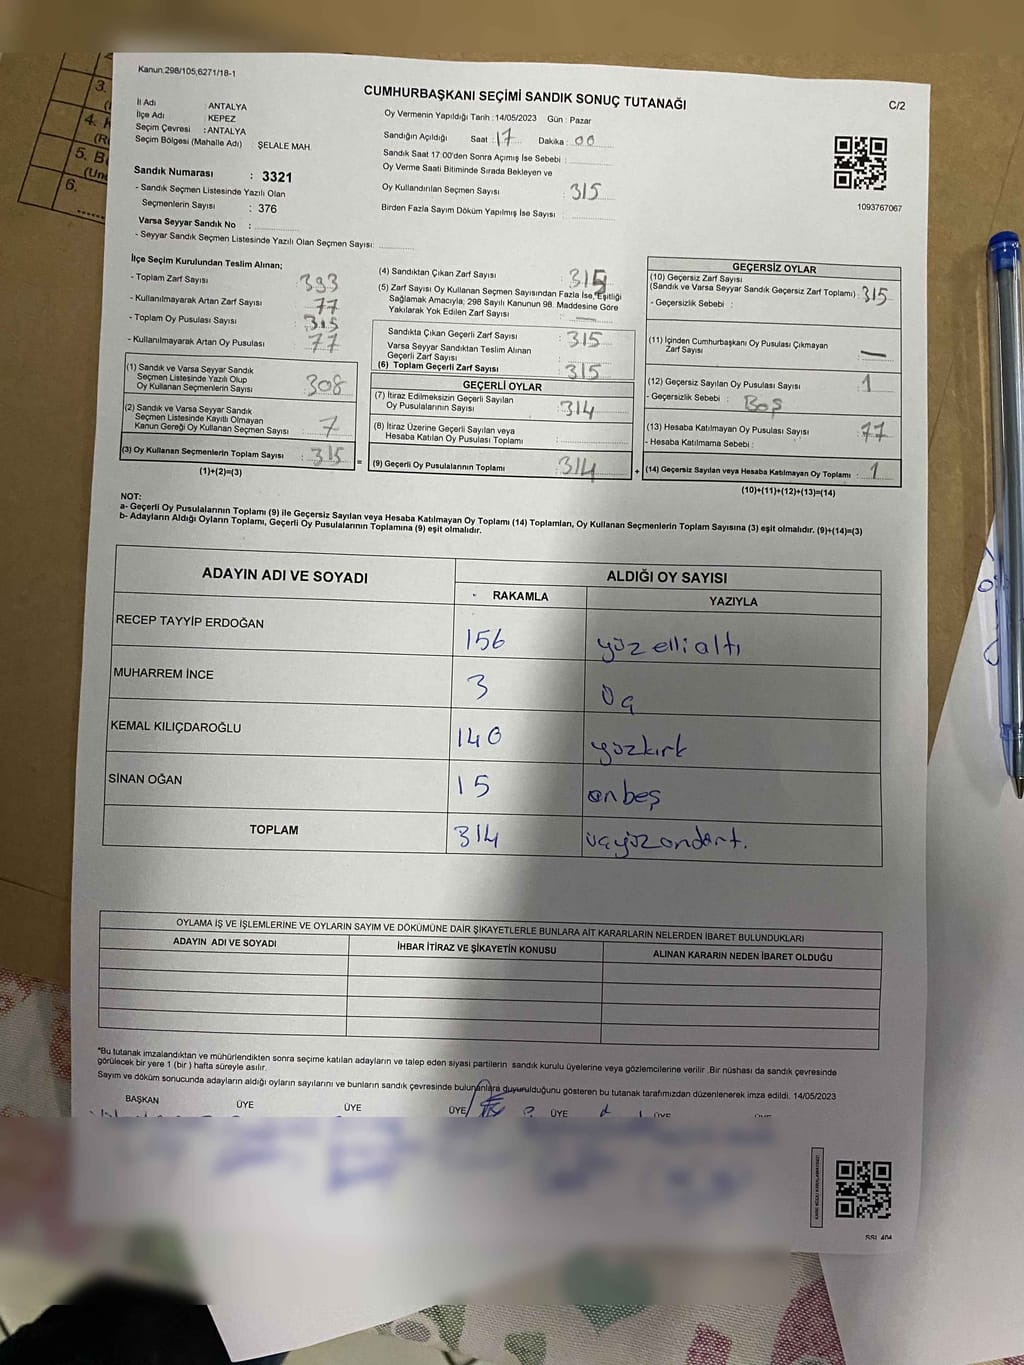 Kanun:298/105,6271/18-1
CUMHURBAŞKANI SEÇİMİ SANDIK SONUÇ TUTANAĞI
C/2
İl Adı : ANTALYA
İlçe Adı : KEPEZ
Seçim Çevresi : ANTALYA
Seçim Bölgesi (Mahalle Adı) : ŞELALE MAH.
Sandık Numarası : 3321
- Sandık Seçmen Listesinde Yazılı Olan
Seçmenlerin Sayısı : 376
Varsa Seyyar Sandık No :
- Seyyar Sandık Seçmen Listesinde Yazılı Olan Seçmen Sayısı:
Oy Vermenin Yapıldığı Tarih :14/05/2023 Gün : Pazar
Sandığın Açıldığı Saat : 17 Dakika : 00
Sandık Saat 17:00'den Sonra Açımış İse Sebebi :
Oy Verme Saati Bitiminde Sırada Bekleyen ve
Oy Kullandırılan Seçmen Sayısı : 315
Birden Fazla Sayım Döküm Yapılmış İse Sayısı :
1093767067
İlçe Seçim Kurulundan Teslim Alınan;
- Toplam Zarf Sayısı : 393
- Kullanılmayarak Artan Zarf Sayısı : 77
- Toplam Oy Pusulası Sayısı : 315
- Kullanılmayarak Artan Oy Pusulası : 77
(1) Sandık ve Varsa Seyyar Sandık
Seçmen Listesinde Yazılı Olup
Oy Kullanan Seçmenlerin Sayısı : 308
(2) Sandık ve Varsa Seyyar Sandık
Seçmen Listesinde Kayıtlı Olmayan
Kanun Gereği Oy Kullanan Seçmen Sayısı : 7
(3) Oy Kullanan Seçmenlerin Toplam Sayısı : 315
(1)+(2)=(3)
(4) Sandıktan Çıkan Zarf Sayısı : 315
(5) Zarf Sayısı Oy Kullanan Seçmen Sayısından Fazla İse, Eşitliği
Sağlamak Amacıyla, 298 Sayılı Kanunun 98. Maddesine Göre
Yakılarak Yok Edilen Zarf Sayısı : —
Sandıkta Çıkan Geçerli Zarf Sayısı : 315
Varsa Seyyar Sandıktan Teslim Alınan
Geçerli Zarf Sayısı :
(6) Toplam Geçerli Zarf Sayısı : 315
GEÇERLİ OYLAR
(7) İtiraz Edilmeksizin Geçerli Sayılan
Oy Pusulalarının Sayısı : 314
(8) İtiraz Üzerine Geçerli Sayılan veya
Hesaba Katılan Oy Pusulası Toplamı :
= (9) Geçerli Oy Pusulalarının Toplamı : 314 +
GEÇERSİZ OYLAR
(10) Geçersiz Zarf Sayısı
(Sandık ve Varsa Seyyar Sandık Geçersiz Zarf Toplamı) : 315
- Geçersizlik Sebebi :
(11) İçinden Cumhurbaşkanı Oy Pusulası Çıkmayan
Zarf Sayısı : —
(12) Geçersiz Sayılan Oy Pusulası Sayısı : 1
- Geçersizlik Sebebi : Boş
(13) Hesaba Katılmayan Oy Pusulası Sayısı : 77
- Hesaba Katılmama Sebebi :
(14) Geçersiz Sayılan veya Hesaba Katılmayan Oy Toplamı : 1
(10)+(11)+(12)+(13)=(14)
NOT:
a- Geçerli Oy Pusulasının Toplamı (9) ile Geçersiz Sayılan veya Hesaba Katılmayan Oy Toplamı (14) Toplamları, Oy Kullanan Seçmenlerin Toplam Sayısına (3) eşit olmalıdır. (9)+(14)=(3)
b- Adayların Aldığı Oyların Toplamı, Geçerli Oy Pusulalarının Toplamına (9) eşit olmalıdır.
ADAYIN ADI VE SOYADI
ALDIĞI OY SAYISI
RAKAMLA YAZIYLA
RECEP TAYYİP ERDOĞAN 156 yüz elli altı
MUHARREM İNCE 3 üç
KEMAL KILIÇDAROĞLU 140 yüzkırk
SİNAN OĞAN 15 onbeş
TOPLAM 314 üçyüzondört.
OYLAMA İŞ VE İŞLEMLERİNE VE OYLARIN SAYIM VE DÖKÜMÜNE DAİR ŞİKAYETLERLE BUNLARA AİT KARARLARIN NELERDEN İBARET BULUNDUKLARI
ADAYIN ADI VE SOYADI
İHBAR İTİRAZ VE ŞİKAYETİN KONUSU
ALINAN KARARIN NEDEN İBARET OLDUĞU
*Bu tutanak imzalandıktan ve mühürlendikten sonra seçime katılan adayların ve talep eden siyasi partilerin sandık kurulu üyelerine veya gözlemcilerine verilir .Bir nüshası da sandık çevresinde
görülecek bir yere 1 (bir ) hafta süreyle asılır.
Sayım ve döküm sonucunda adayların aldığı oyların sayılarını ve bunların sandık çevresinde bulunanlara duyurulduğunu gösteren bu tutanak tarafımızdan düzenlenerek imza edildi. 14/05/2023
BAŞKAN ÜYE ÜYE ÜYE ÜYE ÜYE
3.
4.
5. B
6.